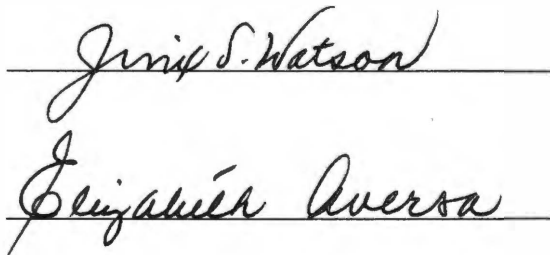 Jinx S. Watson
Elizabeth Aversa